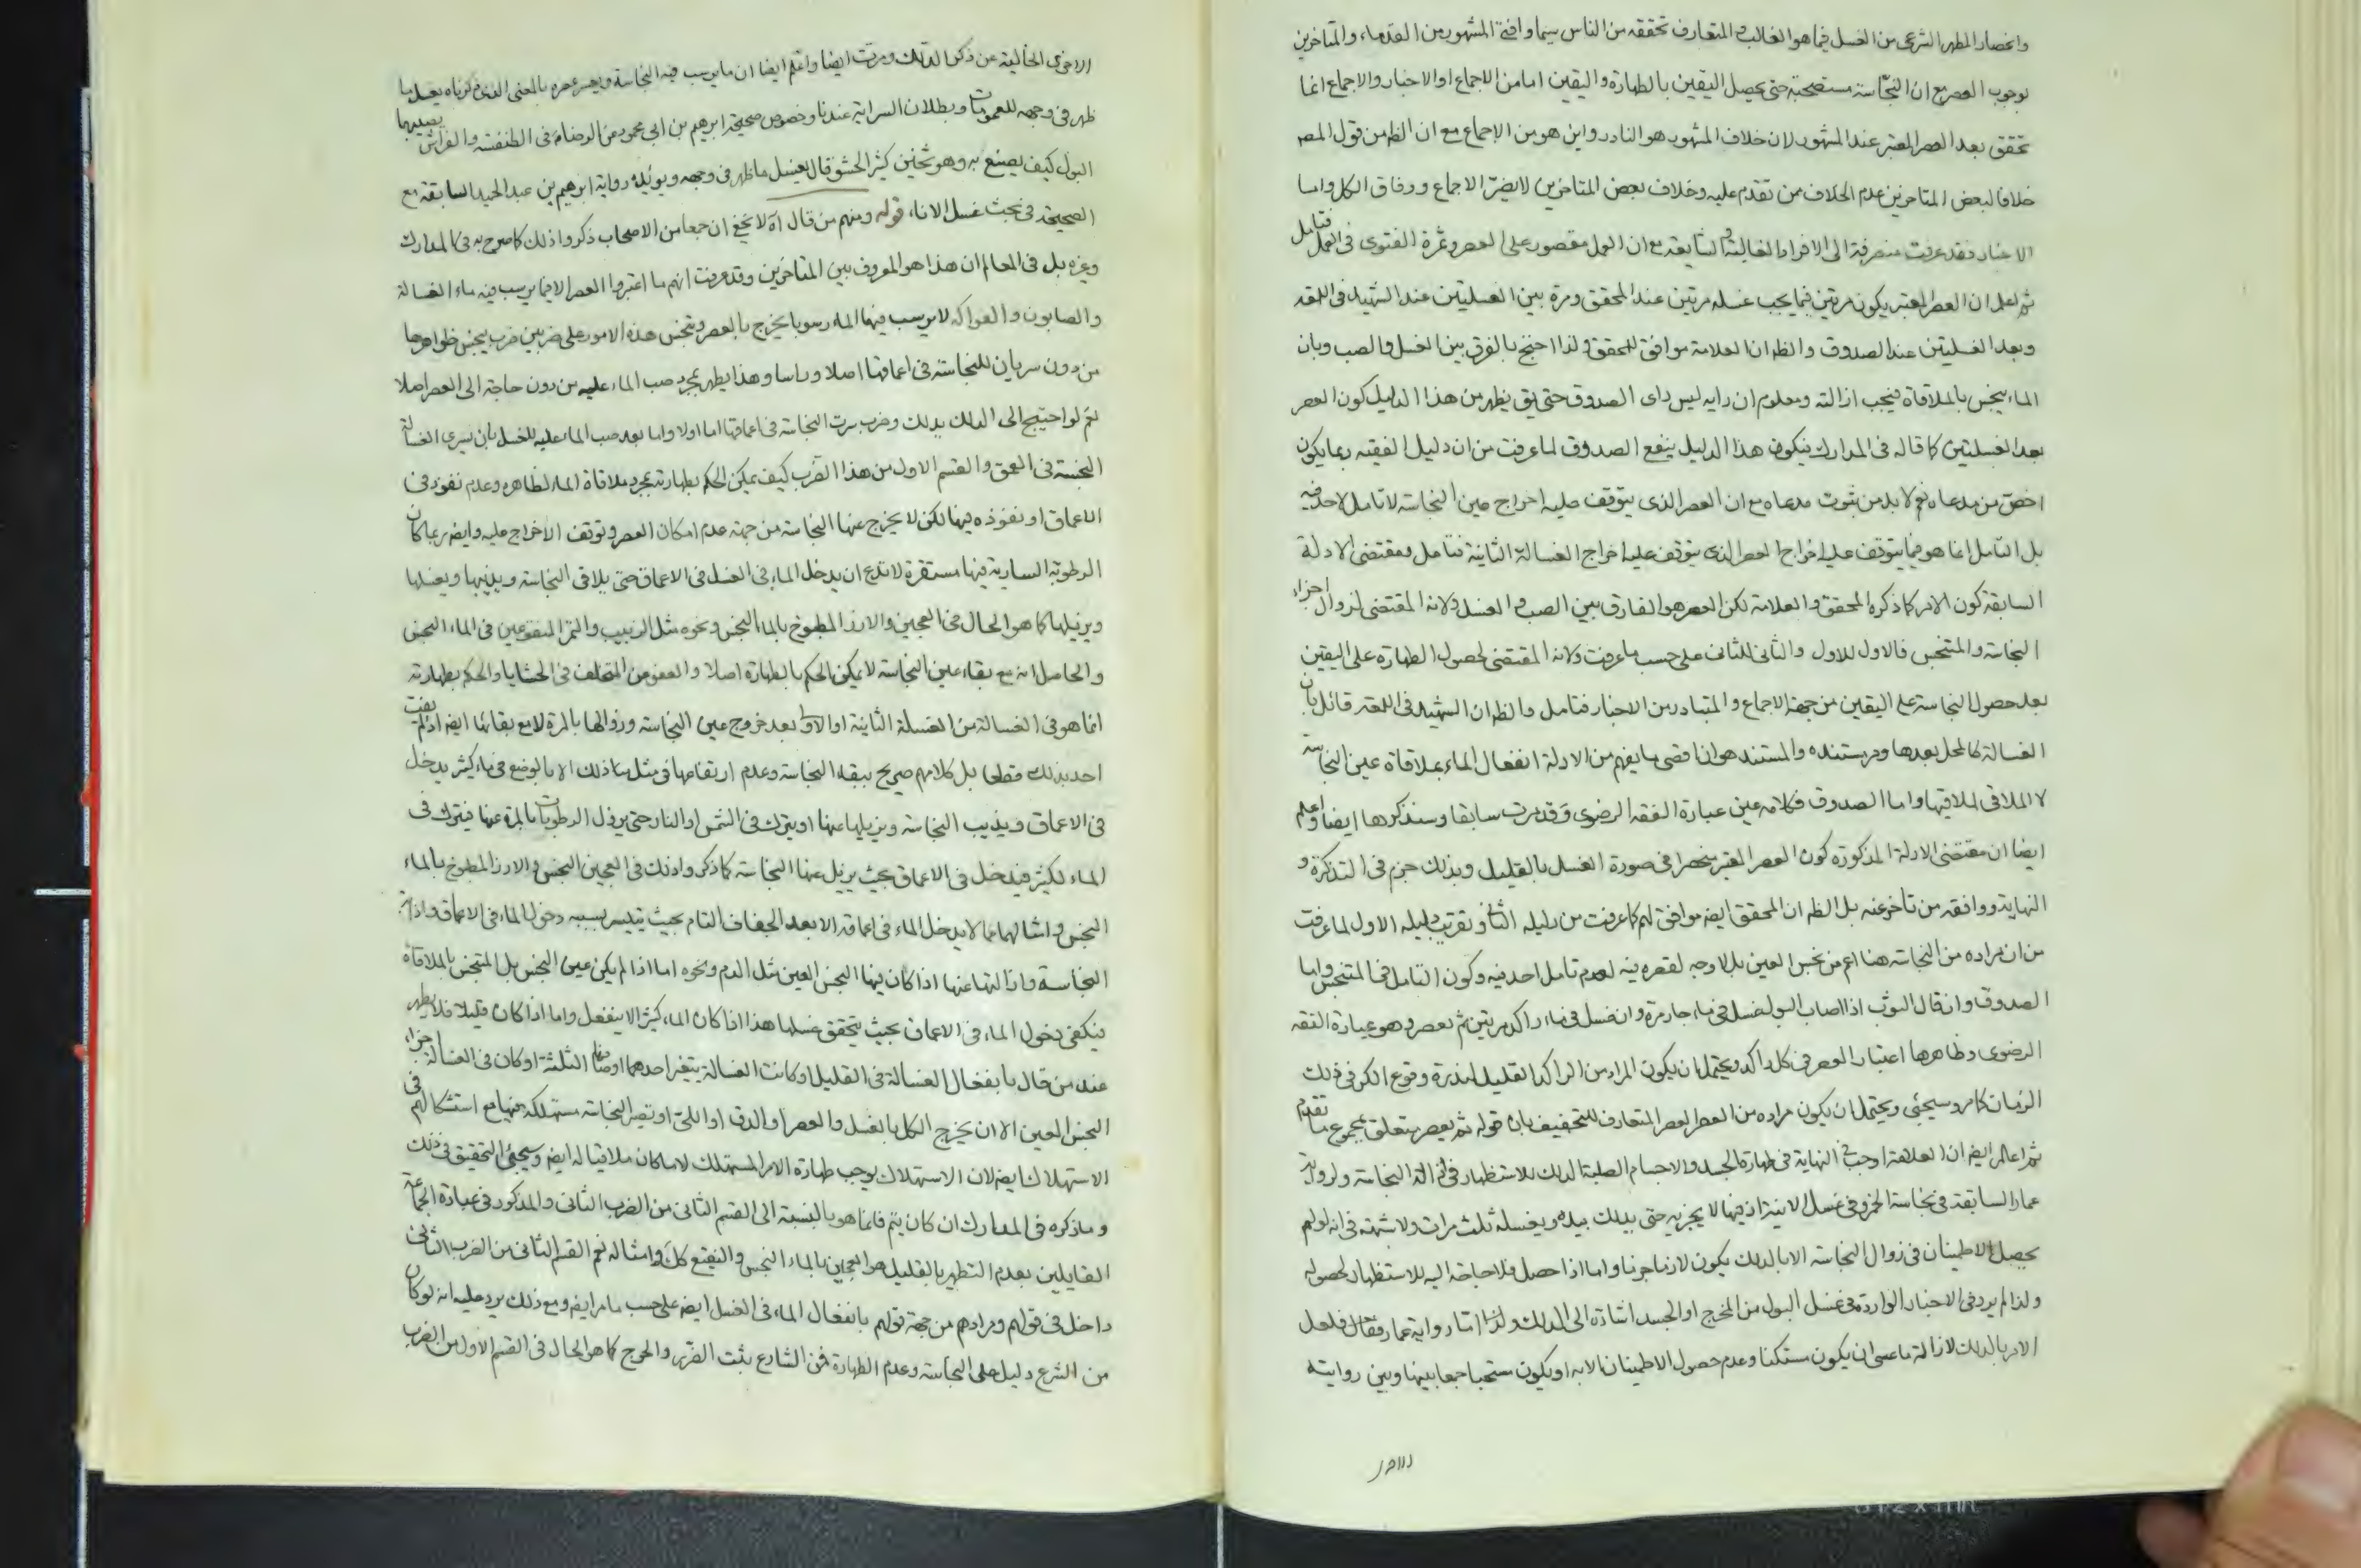 وانحصار المطهر الشرعى من الغسل فيما هو الغالب والمتعارف تحققه من الناس سيما وافتى المشهور من القدماء والمتاخرين
بوجوب العصر مع ان النجاسة مستصحبة حتى يحصل اليقين بالطهارة واليقين اما من الاجماع او الاخبار والاجماع انما
تحقق بعد العصر المعتبر عند المشهور لان خلاف المشهور هو النادر واين هو من الاجماع مع ان الظ من قول المصر
خلافا لبعض المتاخرين عدم الخلاف من تقدم عليه وخلاف بعض المتاخرين لا يضر الاجماع ووفاق الكل واما
الاخبار فقد عرفت منصرفة الى الافراد الغالبة الشايعة مع ان العمل مقصور على العصر وثمرة الفتوى فى العمل فتامل
ثم اعلم ان العصر المعتبر يكون مرتين فيما يجب غسله مرتين عند المحقق ومرة بين الغسلتين عند الشهيد فى اللمعة
وبعد الغسلتين عند الصدوق والظ ان العلامة موافق للمحقق ولذا احتج بالفرق بين الغسل والصب وبان
الماء ينجس بالملاقاة فيجب ازالته ومعلوم ان رايه ليس راى الصدوق حتى يق يظهر من هذا الدليل كون العصر
بعد الغسلتين كما قاله فى المدارك فيكون هذا الدليل ينفع الصدوق لما عرفت من ان دليل الفقيه ربما يكون
اخص من مدعاه نعم لا بد من ثبوت مدعاه مع ان العصر الذى يتوقف عليه اخراج عين النجاسة لا تامل لاحد فيه
بل التامل انما هو فيما يتوقف عليه اخراج العصر الذى يتوقف عليه اخراج الغسالة الثانية فتامل ومقتضى الادلة
السابقة كون الامر كما ذكره المحقق والعلامة لكن العصر هو الفارق بين الصب والغسل ولانه المقتضى لزوال اجزاء
النجاسة والمتنجس فالاول للاول والثانى للثانى على حسب ما عرفت ولانه المقتضى لحصول الطهارة على اليقين
بعد حصول النجاسة على اليقين من جهة الاجماع والمتبادر من الاخبار فتامل والظ ان الشهيد فى اللمعة قائل بان
الغسالة كالمحل بعدها ومر مستنده والمستند هو ان اقصى ما يفهم من الادلة انفعال الماء بملاقاة عين النجاسة
لا الملاقى لملاقيها واما الصدوق فكلامه عين عبارة الفقه الرضوى وقد مرت سابقا وسنذكرها ايضا واعلم
ايضا ان مقتضى الادلة المذكورة كون العصر المعتبر منحصرا فى صورة الغسل بالقليل وبذلك جزم فى التذكرة و
النهاية ووافقه من تاخر عنه بل الظ ان المحقق ايضه موافق لهم كما عرفت من دليله الثانى وتقريب دليله الاول لما عرفت
من ان مراده من النجاسة هنا اعم من نجس العين بل لا وجه لقصره فيه لعدم تامل احد فيه وكون التامل فى المتنجس واما
الصدوق وان قال الثوب اذا اصاب البول غسل فى ماء جار مرة وان غسل فى ماء راكد مرتين ثم يعصر وهو عبارة الفقه
الرضوى وظاهرها اعتبار العصر فى كل راكد ويحتمل ان يكون المراد من الراكد القليل لندرة وقوع الكر فى ذلك
الزمان كما مر وسيجئ ويحتمل ان يكون مراده من العصر العصر المتعارف للتخفيف بان قوله ثم يعصر متعلق بمجموع ما تقدم
ثم اعلم ايضه ان العلامة اوجب فى النهاية فى طهارة الجسد والاجسام الصلبة الدلك للاستظهار فى ازالة النجاسة ولرواية
عمار السابقة فى نجاسة الخمر وفى غسل الانية اذ فيها لا يجزيه حتى يدلك بيده ويغسله ثلث مرات ولا شبهة فى انه لو لم
يحصل الاطمينان فى زوال النجاسة الا بالدلك يكون لازما جزما واما اذا حصل فلا حاجة اليه للاستظهار لحصوله
ولذا لم يرد فى الاخبار الواردة فى غسل البول من المخرج او الجسد اشارة الى الدلك ولذا اما رواية عمار فلعل
الامر بالدلك لازالة ما عسى ان يكون مستكنا وعدم حصول الاطمينان الا به او يكون مستحبا جمعا بينها وبين روايته
الاخرى الخالية عن ذكر الدلك ومرت ايضا واعلم ايضا ان ما يرسب فيه النجاسة ويعسر عصره بالمعنى الذى ذكرناه يغسل ما
ظهر فى وجهه للعمومات وبطلان السراية عندنا وخصوص صحيحة ابرهيم بن ابى محمود عن الرضا ع فى الطنفسة والفراش يصيبهما
البول كيف يصنع به وهو ثخين كثير الحشو قال يغسل ما ظهر فى وجهه ويؤيده رواية ابرهيم بن عبد الحميد السابقة مع
الصحيحة فى بحث غسل الاناء قوله ومنهم من قال اه لا يخفى ان جمعا من الاصحاب ذكروا ذلك كما صرح به فى المدارك
وغيره بل فى المعالم ان هذا هو المعروف بين المتاخرين وقد عرفت انهم ما اعتبروا العصر الا فيما يرسب فيه ماء الغسالة
والصابون والفواكه لا يرسب فيها الماء رسوبا يخرج بالعصر وتنجس هذه الامور على ضربين ضرب ينجس ظواهرها
من دون سريان للنجاسة فى اعماقها اصلا وراسا وهذا يطهر بمجرد صب الماء عليه من دون حاجة الى العصر اصلا
نعم لو احتيج الى الدلك يدلك وضرب سرت النجاسة فى اعماقها اما اولا واما بعد صب الماء عليه للغسل بان يسرى الغسالة
النجسة فى العمق والقسم الاول من هذا الضرب كيف يمكن الحكم بطهارته بمجرد ملاقاة الماء لظاهره وعدم نفوذه فى
الاعماق او نفوذه فيها لكن لا يخرج عنها النجاسة من جهة عدم امكان العصر وتوقف الاخراج عليه وايضه ربما كان
الرطوبة السارية فيها مستقرة لا تدع ان يدخل الماء فى الغسل فى الاعماق حتى يلاقى النجاسة ويذيبها ويغسلها
ويزيلها كما هو الحال فى العجين والارز المطبوخ بالماء النجس ونحوه مثل الزبيب والتمر المنقوعين فى الماء النجس
والحاصل انه مع بقاء عين النجاسة لا يمكن الحكم بالطهارة اصلا والعفو من المتخلف فى الحشايا والحكم بطهارته
انما هو فى الغسالة من الغسلة الثانية او الاولى بعد خروج عين النجاسة وزوالها بالمرة لا مع بقائها ايضه اذ لم يفت
احد بذلك قطعا بل كلامهم صريح ببقاء النجاسة وعدم ارتفاعها فى مثل ما ذلك الا بالوضع فى ماء كثير يدخل
فى الاعماق ويذيب النجاسة ويزيلها عنها او يترك فى الشمس او النار حتى يزول الرطوبات بالمرة عنها فيترك فى
الماء الكثير فيدخل فى الاعماق بحيث يزيل عنها النجاسة كما ذكروا ذلك فى العجين النجس والارز المطبوخ بالماء
النجس وامثالهما مما لا يدخل الماء فى اعماقه الا بعد الجفاف التام بحيث يتيسر بسببه دخول الماء فى الاعماق واذابة
النجاسة وازالتها عنها اذا كان فيها النجس العين مثل الدم ونحوه اما اذا لم يكن عين النجس بل المتنجس بالملاقاة
فيكفى دخول الماء فى الاعماق بحيث يتحقق غسلها هذا اذا كان الماء كثيرا لا ينفعل واما اذا كان قليلا فلا يطهر
عند من قال بانفعال الغسالة فى القليل او كانت الغسالة يتغير احدهما اوصافها الثلثة او كان فى الغسالة اجزاء
النجس العين الا ان يخرج الكل بالغسل والعصر او الدق او اللتى او تصير النجاسة مستهلكة فيها مع استشكالهم فى
الاستهلاك ايضه لان الاستهلاك يوجب طهارة الامر المستهلك لا ما كان ملاقيا له ايضه وسيجئ التحقيق فى ذلك
وما ذكره فى المدارك ان كان يتم فانما هو بالنسبة الى القسم الثانى من الضرب الثانى والمذكور فى عبارة الجماعة
القايلين بعدم التطهير بالقليل هو العجين بالماء النجس والنقيع كك وامثاله نعم القسم الثانى من الضرب الثانى
داخل فى قولهم ومرادهم من جهة قولهم بانفعال الماء فى الغسل ايضه على حسب ما مر ايضه ومع ذلك يرد عليه انه لو كان
من الشرع دليل على النجاسة وعدم الطهارة فمن الشارع يثبت الضرر والحرج كما هو الحال فى القسم الاول من الضرب